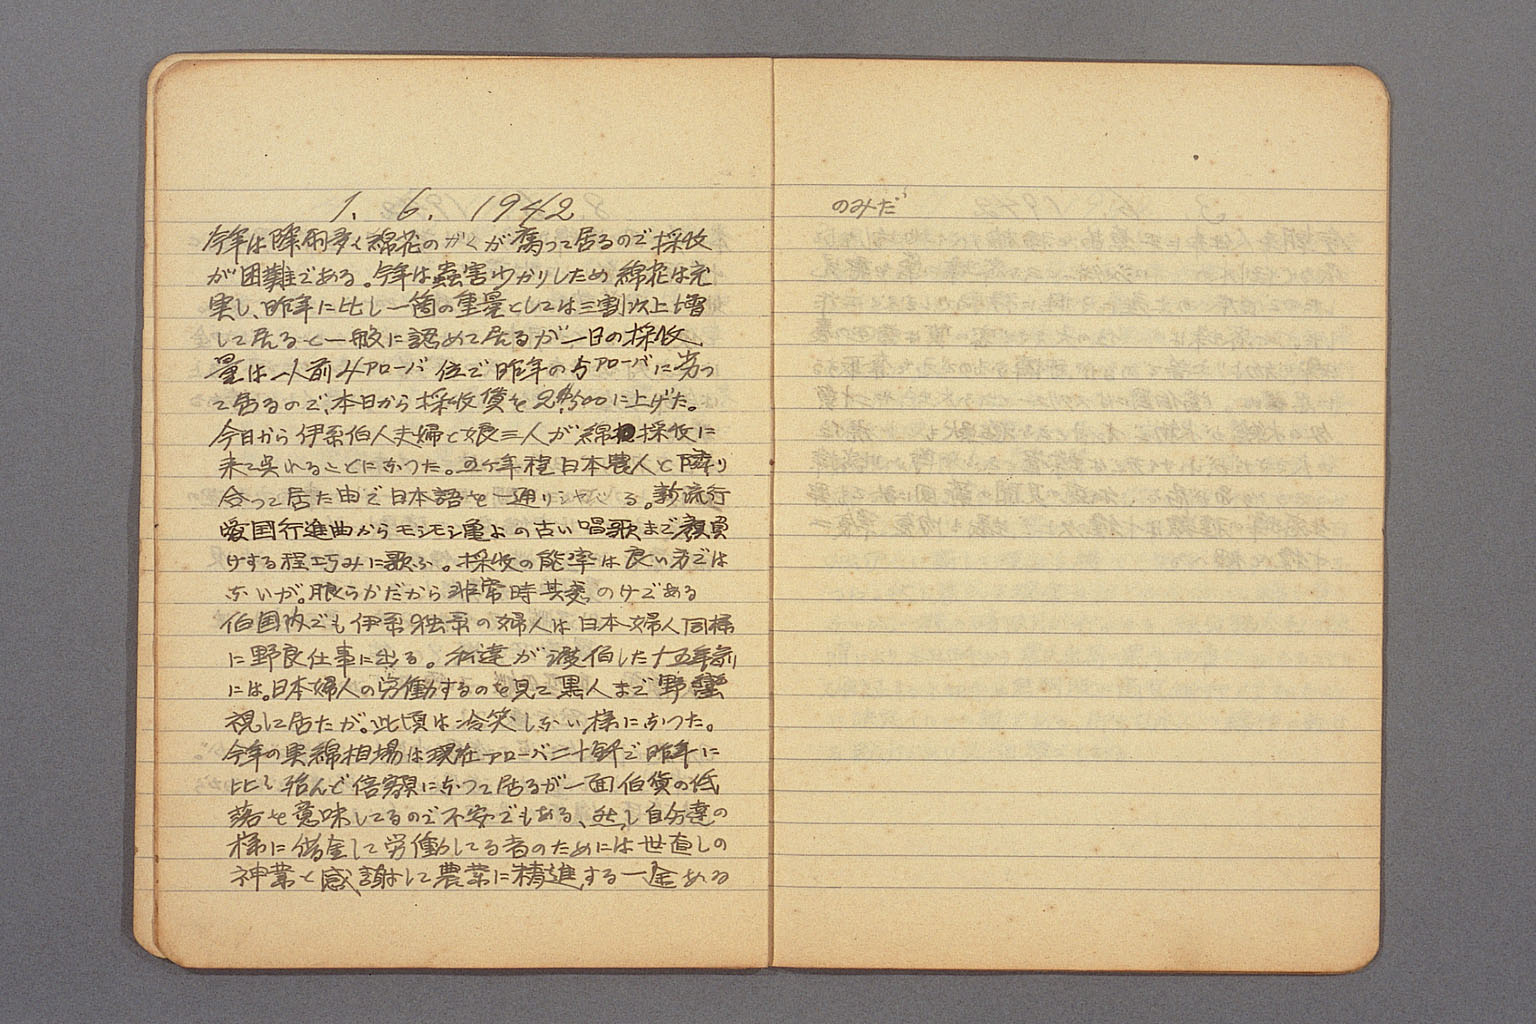 1. 6. 1942
今年は降雨多く綿花のがくが腐って居るので採收
が困難である。今年は蟲害少かりしため綿花は充
実し、昨年に比し一箇の重量としては三割以上も増
して居ると一般に認めて居るが一日の採收
量は一人前みアローバ位で昨年の5アローバに劣っ
て居るので、本日から採收賃を2$500に上げた。
今日から伊系伯人夫婦と娘三人が綿採收に
来て呉れることになつた。五ケ年程日本農人と隣り
合って居た由で日本語を一通りシャベる。新流行
愛国行進曲からモシモシ亀よの古い唱歌まで顔負
けする程巧みに歌ふ。採收の能率は良い方では
ないが。朗らかだから非常時其の
伯国内でも伊系独系の婦人は日本婦人同様
に野良仕事に出る。私達が渡伯した十五年前
には。日本婦人の労働するのを見て黒人まで野蠻
視して居たが。此頃は冷笑しない様になつた。
今年の実綿相場は現在アローバ二十で昨年に
比し殆んど倍額になつて居るが一面伯貨の低
落を意味してるので不安でもある、然し自分達の
様に借金して労働してる者のためには世直しの
神業と感謝して農業に精進する一念ある
のみだ